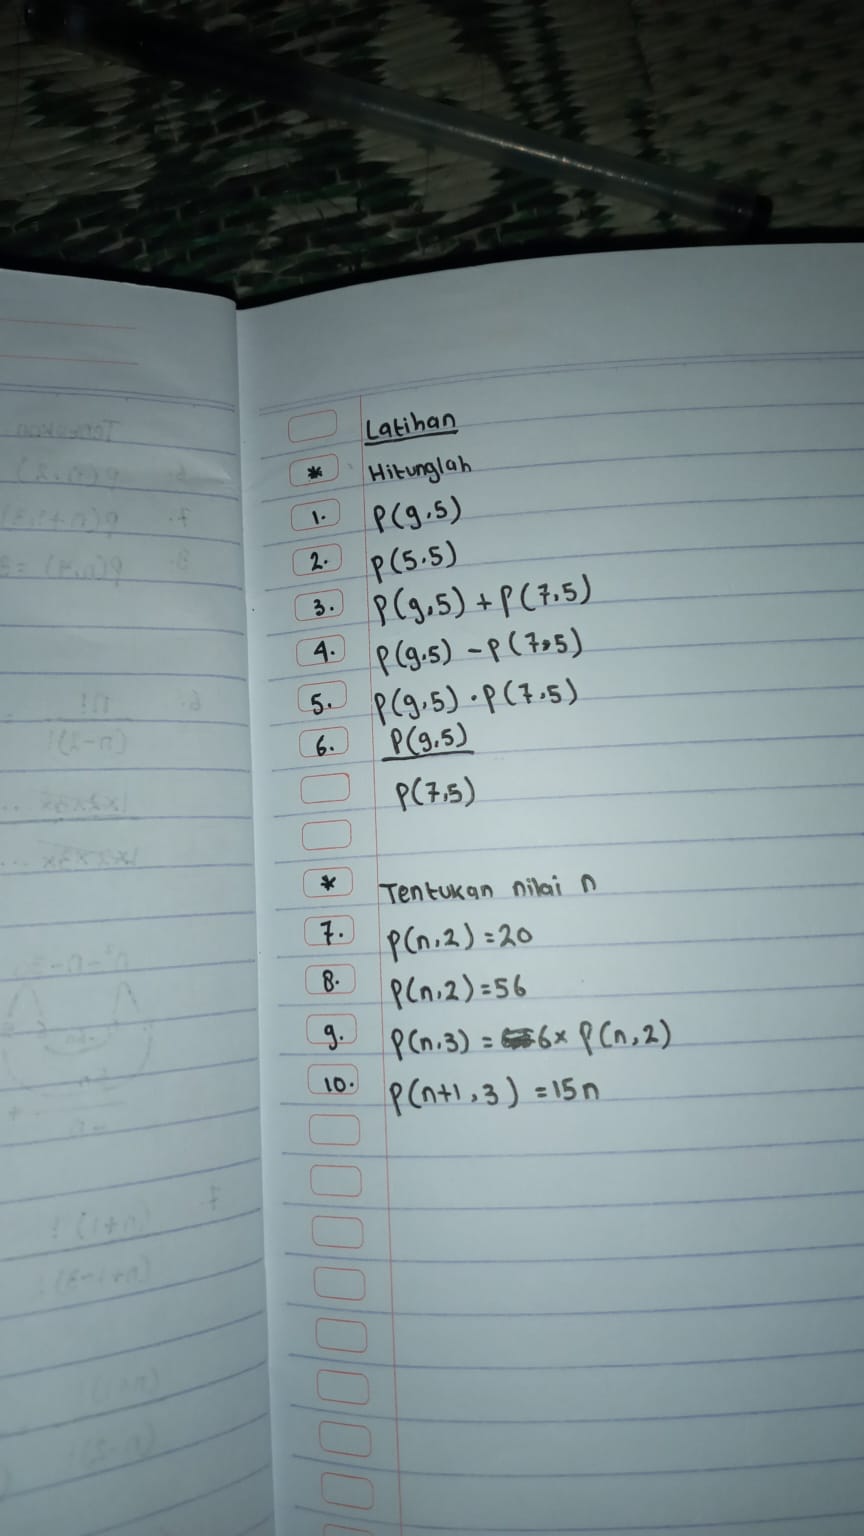 Latihan
* Hitunglah
1. P(9,5)
2. P(5,5)
3. P(9,5) + P(7,5)
4. P(9,5) - P(7,5)
5. P(9,5) · P(7,5)
6. P(9,5)
P(7,5)
* Tentukan nilai n
7. P(n,2) = 20
8. P(n,2) = 56
9. P(n,3) = 6x P(n,2)
10. P(n+1,3) = 15n